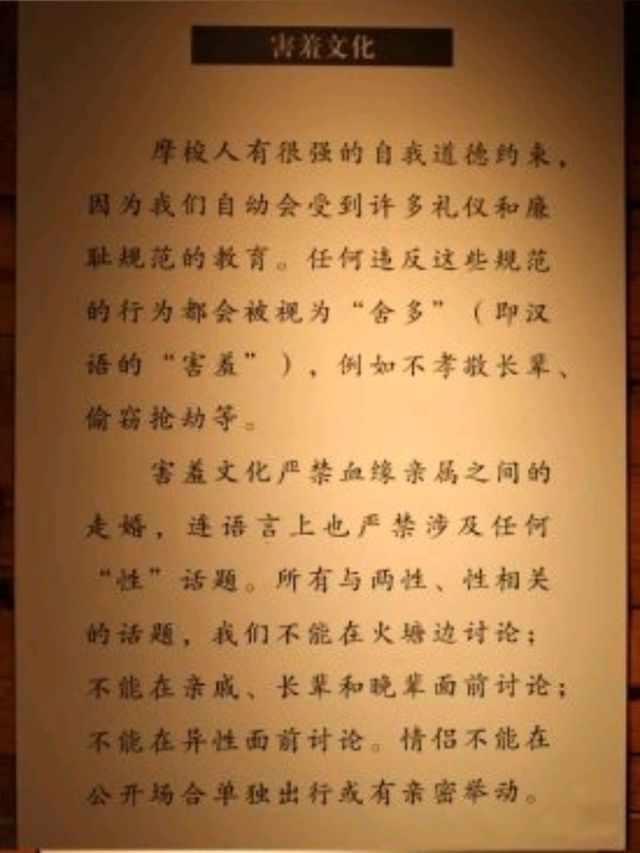 害羞文化
摩梭人有很强的自我道德约束，
因为我们自动会受到许多礼仪和廉
耻规范的教育。任何违反这些规范
的行为都会被视为“舍多”（即汉
语的“害羞”），例如不孝敬长辈、
偷窃抢劫等。
害羞文化严禁血缘亲属之间的
走婚，连语言上也严禁涉及任何
“性”话题。所有与两性、性相关
的话题，我们不能在火塘边讨论；
不能在亲戚、长辈和晚辈面前讨论；
不能在异性面前讨论。情侣不能在
公开场合单独出行或有亲密举动。